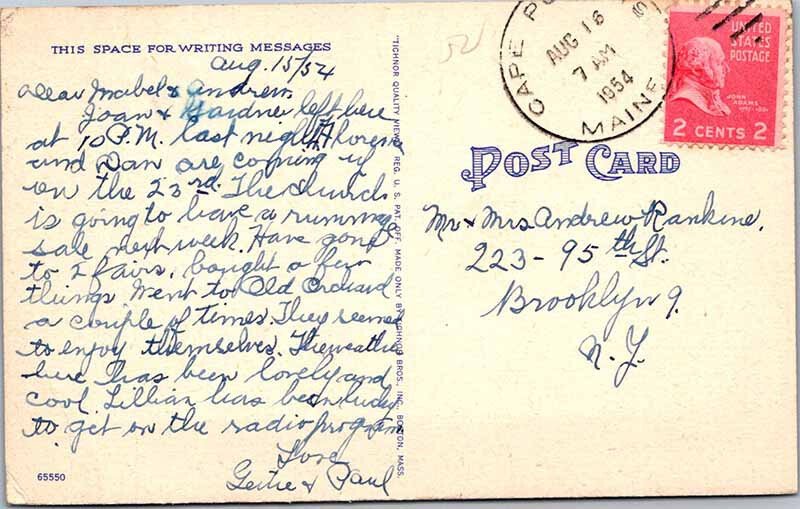 THIS SPACE FOR WRITING MESSAGES
Aug. 15/54
Dear Mabel & Andrew.
Joan & Gardner left here
at 10 P.M. last night. Florence
and Dan are coming up
on the 23rd. The church
is going to have a rummage
sale next week. Have gone
to 2 fairs, bought a few
things. Went to Old Orchard
a couple of times. They seemed
to enjoy themselves. The weather
here has been lovely and
cool. Lillian has been lucky
to get on the radio program
Love
Gertie & Paul
65550
"TICHNOR QUALITY VIEWS," REG. U. S. PAT. OFF. MADE ONLY BY TICHNOR BROS., INC., BOSTON, MASS.
CAPE PO
AUG 16
7 AM
1954
MAINE
UNITED
STATES
POSTAGE
JOHN
ADAMS
2 CENTS 2
POST CARD
Mr & Mrs Andrew Rankine.
223-95th St.
Brooklyn 9.
N.Y.